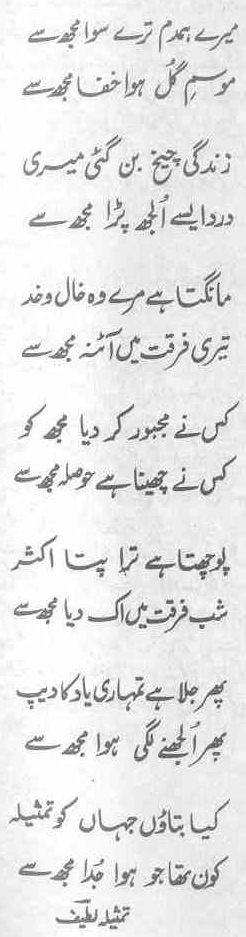 میرے ہمدم ترے سوا مجھ سے
موسمِ گُل ہوا خفا مجھ سے
زندگی چیخ بن گئی میری
درد ایسے اُلجھ پڑا مجھ سے
مانگتا ہے مرے وہ خال و خد
تیری فرقت میں آئنہ مجھ سے
کس نے مجبور کر دیا مجھ کو
کس نے چھینا ہے حوصلہ مجھ سے
پوچھتا ہے ترا پتا اکثر
شب فرقت میں اک دیا مجھ سے
پھر جلا ہے تمہاری یاد کا دیپ
پھر اُلجھنے لگی ہوا مجھ سے
کیا بتاؤں جہاں کو تمثیلہ
کون تھا جو ہوا جُدا مجھ سے
تمثیلہ لطیف